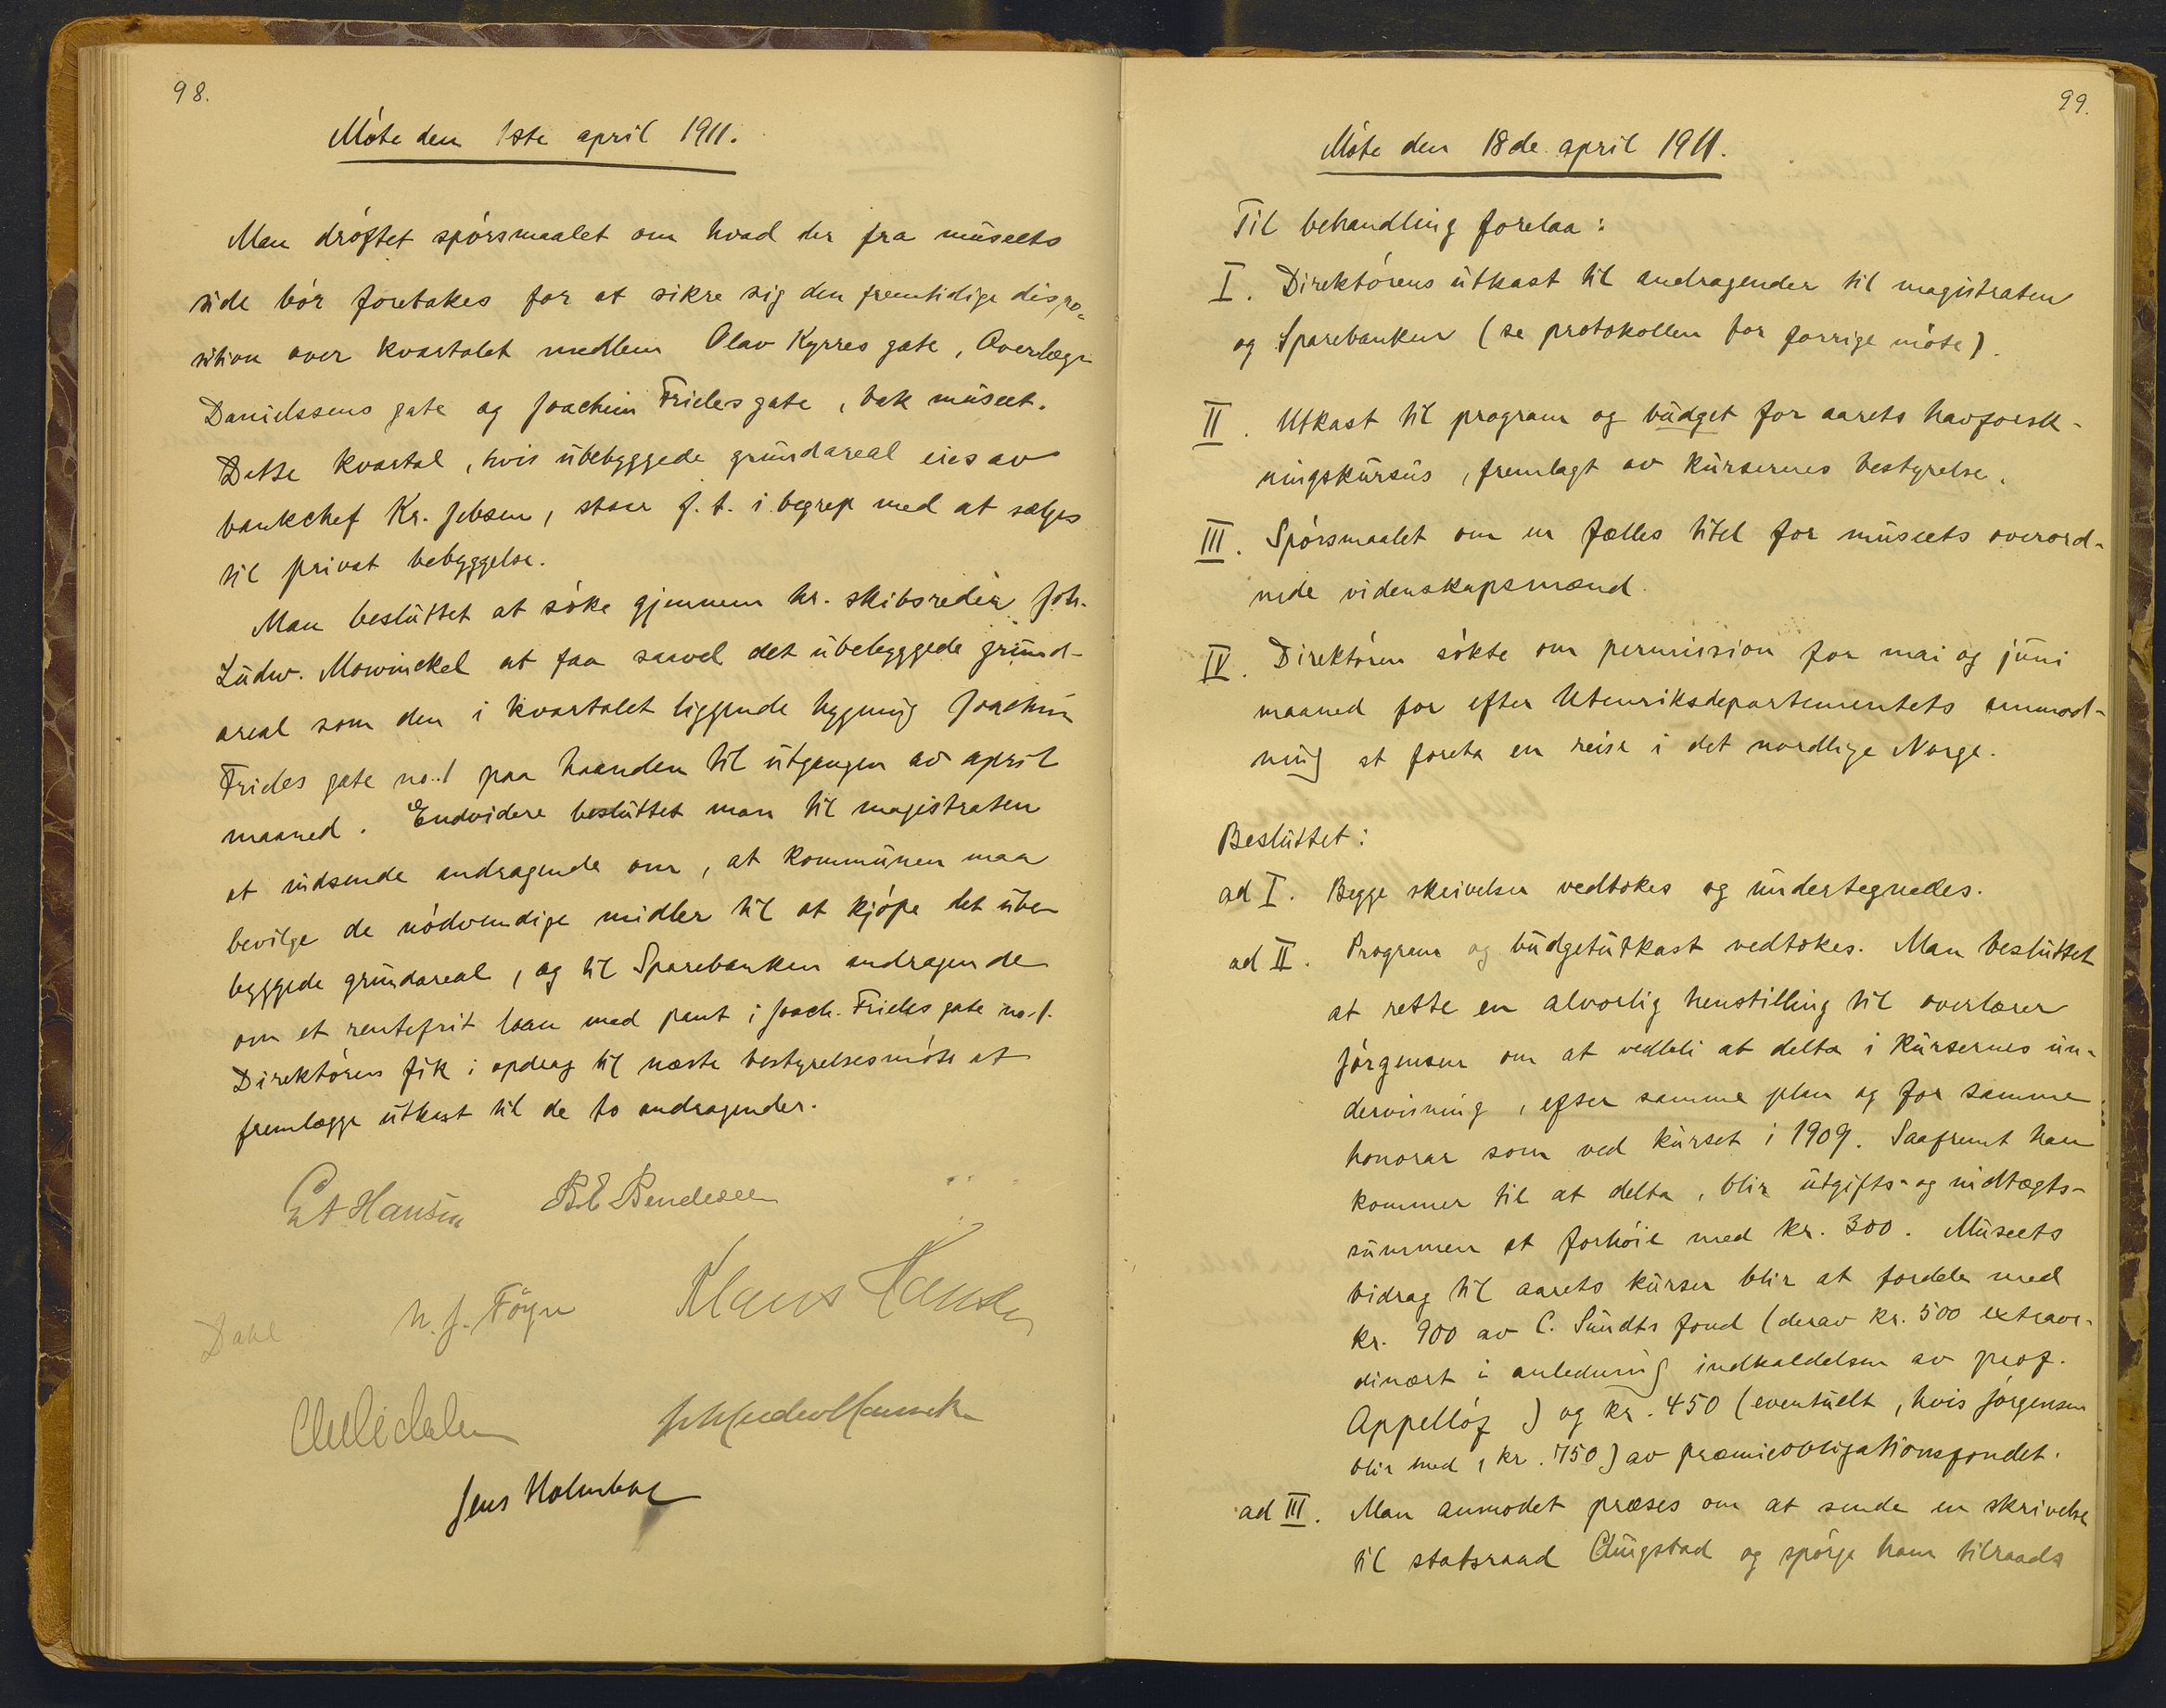 98.
Møte den 1ste april 1911.
Man drøftet spørsmaalet om hvad der fra museets
side bør foretakes for at sikre sig den fremtidige dispo-
sition over kvartalet mellem Olav Kyrres gate, Overlæge
Danielssens gate og Joachim Frieles gate, bak museet.
Dette kvartal, hvis ubebyggede grundareal eies av
bankchef Kr. Jebsen, staar f. t. i begrep med at sælges
til privat bebyggelse.
Man besluttet at søke gjennem hr. skibsreder Joh.
Ludw. Mowinckel at faa saavel det ubebyggede grund-
areal som den i kvartalet liggende bygning Joachim
Frieles gate no. 1 paa haanden til utgangen av april
maaned. Endvidere besluttet man til magistraten
at indsende andragende om, at kommunen maa
bevilge de nødvendige midler til at kjøpe det ube-
byggede grundareal, og til Sparebanken andragende
om et rentefrit laan med pant i Joach. Frieles gate no. 1.
Direktøren fik i opdrag til næste bestyrelsesmøte at
fremlægge utkast til de to andragender.
Hansen B.E. Bendixen
N. J. Føyn Klaus Hansen
Dahl
Jens Holmboe
99.
Møte den 18de april 1911.
Til behandling forelaa:
I. Direktørens utkast til andragender til magistraten
og Sparebanken (se protokollen for forrige møte).
II. Utkast til program og budget for aarets havforsk-
ningskursus, fremlagt av kursernes bestyrelse.
III. Spørsmaalet om en fælles titel for museets overord-
nede videnskapsmænd.
IV. Direktøren søkte om permission for mai og juni
maaned for efter Utenriksdepartementets anmod-
ning at foreta en reise i det nordlige Norge.
Besluttet:
ad I. Begge skrivelser vedtokes og undertegnedes.
ad II. Program og budgetutkast vedtokes. Man besluttet
at rette en alvorlig henstilling til overlærer
Jørgensen om at vedbli at delta i kursernes un-
dervisning, efter samme plan og for samme
honorar som ved kurset i 1909. Saafremt han
kommer til at delta, blir utgifts- og indtægts-
summen at forhøie med kr. 300. Museets
bidrag til aarets kurser blir at fordele med
kr. 900 av C. Sundts fond (derav kr. 500 extraor-
dinært i anledning indkaldelsen av prof.
Appelløf) og kr. 450 (eventuelt, hvis Jørgensen
blir med, kr. 750) av præmieobligationsfondet.
ad III. Man anmodet præses om at sende en skrivelse
til statsraad Qvigstad og spørge ham tilraads